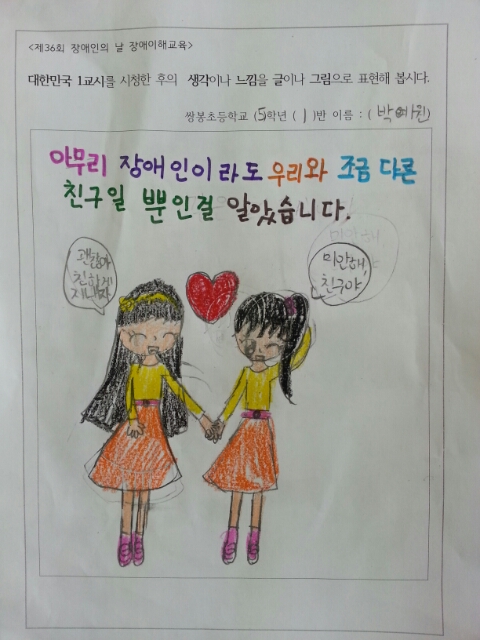 <제36회 장애인의 날 장애이해교육>
대한민국 1교시를 시청한 후의 생각이나 느낌을 글이나 그림으로 표현해 봅시다.
쌍봉초등학교 (5)학년 (1)반 이름 : (박예원)
아무리 장애인이라도 우리와 조금 다른
친구일 뿐인걸 알았습니다.
괜찮아
친하게
지내자
미안해,
친구야